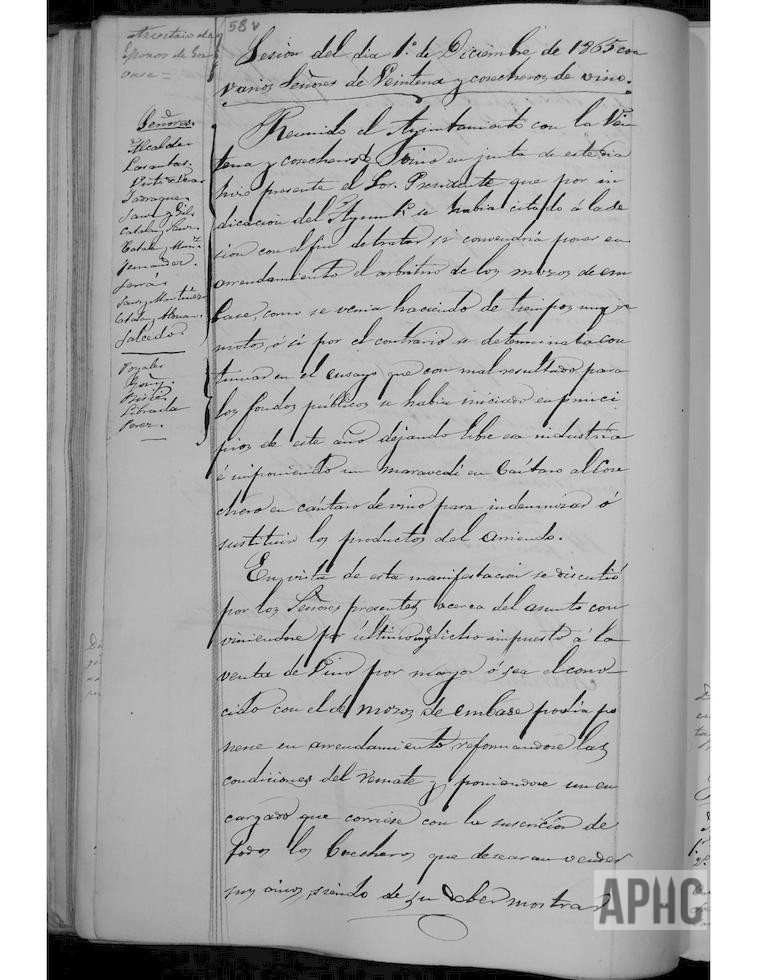 58 v
Sesion del dia 1º de Diciembre de 1865 con
varios Señores de Veintena y cosecheros de vino.
Señores
Alcalde
Tarrague
Sanz y Gil
Catalan
Catalan
Fernandez
Sanz y Martinez
Catalan
Salcedo
Vocales
Librada
Perez
Reunido el Ayuntamiento con la Vein
tena y cosecheros de Vino en junta de este dia
hizo presente el Sor. Presidente que por in
dicacion del Ayunto se habia citado á la se
sion con el fin de tratar si convendria poner en
arrendamiento el arbitrio de los mozos de em
base, como se venia haciendo de tiempos muy re
motos, ó si por el contrario se determinaba con
tinuar en el ensayo que con mal resultado para
los fondos públicos se habia iniciado en princi
pios de este año dejando libre esa industria
é imponiendo un maravedí en Cántaro al Cose
chero en cántaro de vino para indemnizar ó
sustituir los productos del Arriendo.
En vista de esta manifestacion se discutió
por los Señores presentes acerca del asunto con
viniendose por último dicho impuesto á la
venta de Vino por mayor ó sea el cono-
cido con el de mozos de embase podia po
nerse en arrendamiento, reformandose las
condiciones del remate y poniendose un en
cargado que corriese con la suscricion de
todos los Cosecheros que desearan vender
sus vinos, siendo de su deber mostrar
APHC